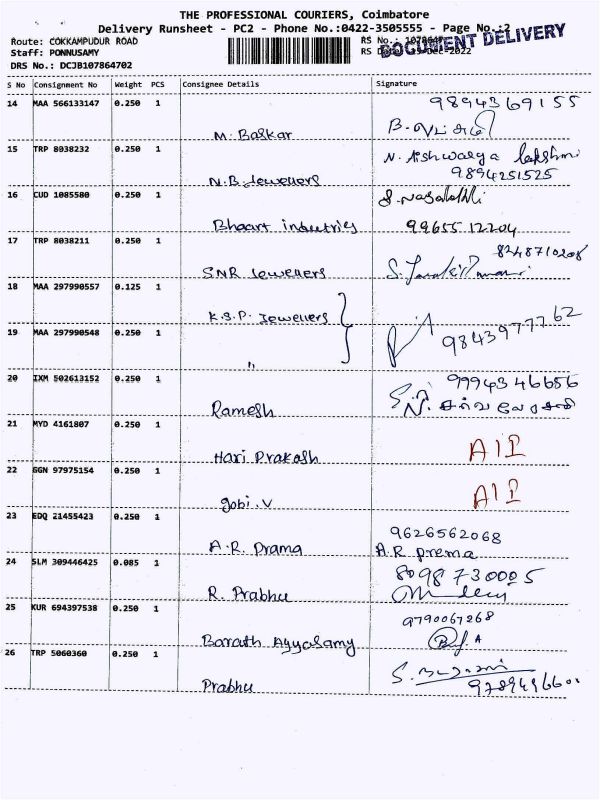 THE PROFESSIONAL COURIERS, Coimbatore
Delivery Runsheet - PC2 - Phone No.:0422-3505555 - Page No.:2
Route: COKKAMPUDUR ROAD
RS No.:
DOCUMENT DELIVERY
Staff: PONNUSAMY
RS Dec-2022
DRS No.: DCJB107864702
S No Consignment No Weight PCS Consignee Details Signature
14 MAA 566133147 0.250 1 M. Baskar 9894369155
15 TRP 8038232 0.250 1 N.B. Jewellers N. Aishwarya lakshmi
9894251525
16 CUD 1085580 0.250 1 Bhaart industries
99655 12204
17 TRP 8038211 0.250 1 SNR Jewellers 8248710208
18 MAA 297990557 0.125 1 K.S.P. Jewellers
19 MAA 297990548 0.250 1 " 9843977762
20 IXM 502613152 0.250 1 Ramesh 9994346656
21 MYD 4161807 0.250 1 Hari Prakash
22 GGN 97975154 0.250 1 Gobi.V
23 EDQ 21455423 0.250 1 A.R. Prama 9626562068
A.R prema
24 SLM 309446425 0.085 1 R. Prabhu 8098730005
25 KUR 694397538 0.250 1 Barath Ayyasamy 9790067268
26 TRP 5060360 0.250 1 Prabhu